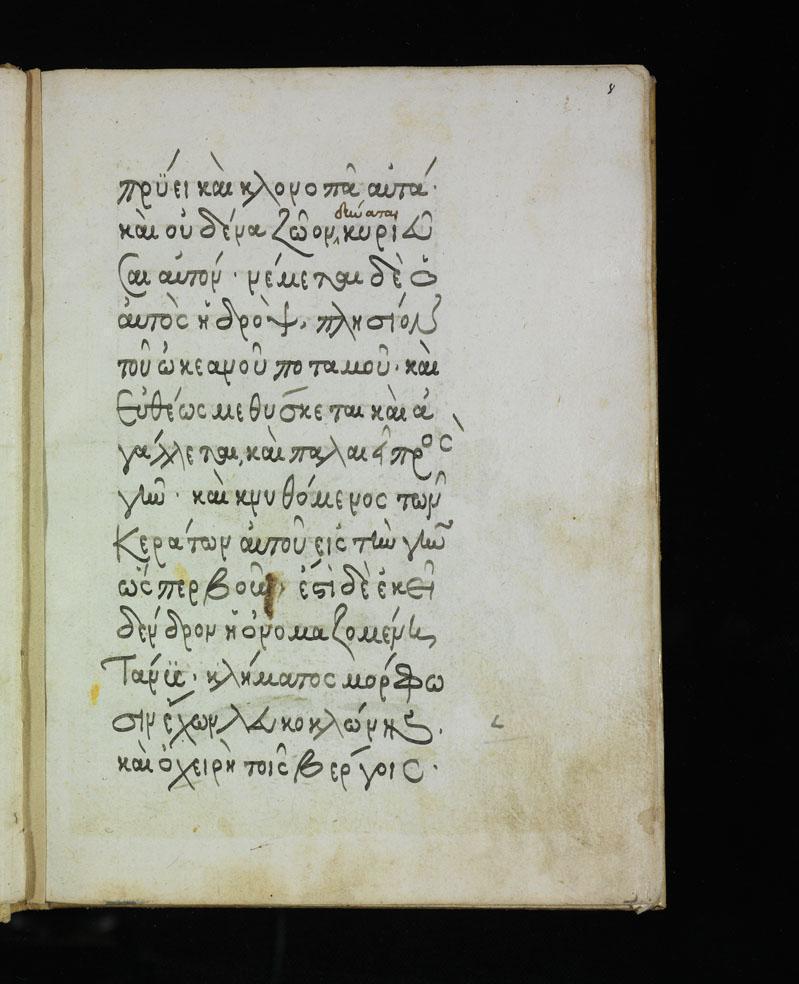 8
πρΰει καὶ κλονο πᾶ αὐτά·
δεύαται
καὶ οὐ δένα ζῶον, κυριεῦ
σαι αὐτόν· νέμεται δὲ ὁ
αὐτὸς ἡ δρὸψ, πλησίον
τοῦ ὠκεανοῦ ποταμοῦ· καὶ
εὐθέως μεθύσκεται καὶ ἀ
γάλλεται, καὶ παλαίει πρὸς
γῆν· καὶ κρυθόμενος τῶν
κεράτων αὐτοῦ εἰς τὴν γῆν
ὥς περ βοῶν· ἐστὶ δὲ ἐκεῖ
δένδρον ἡ ὀνομαζομένη
Τάνις· κλήματος μόρφω
σιν ἔχων λευκοκλώνης.
καὶ ὀχειρὴ τοῖς βεργοις·